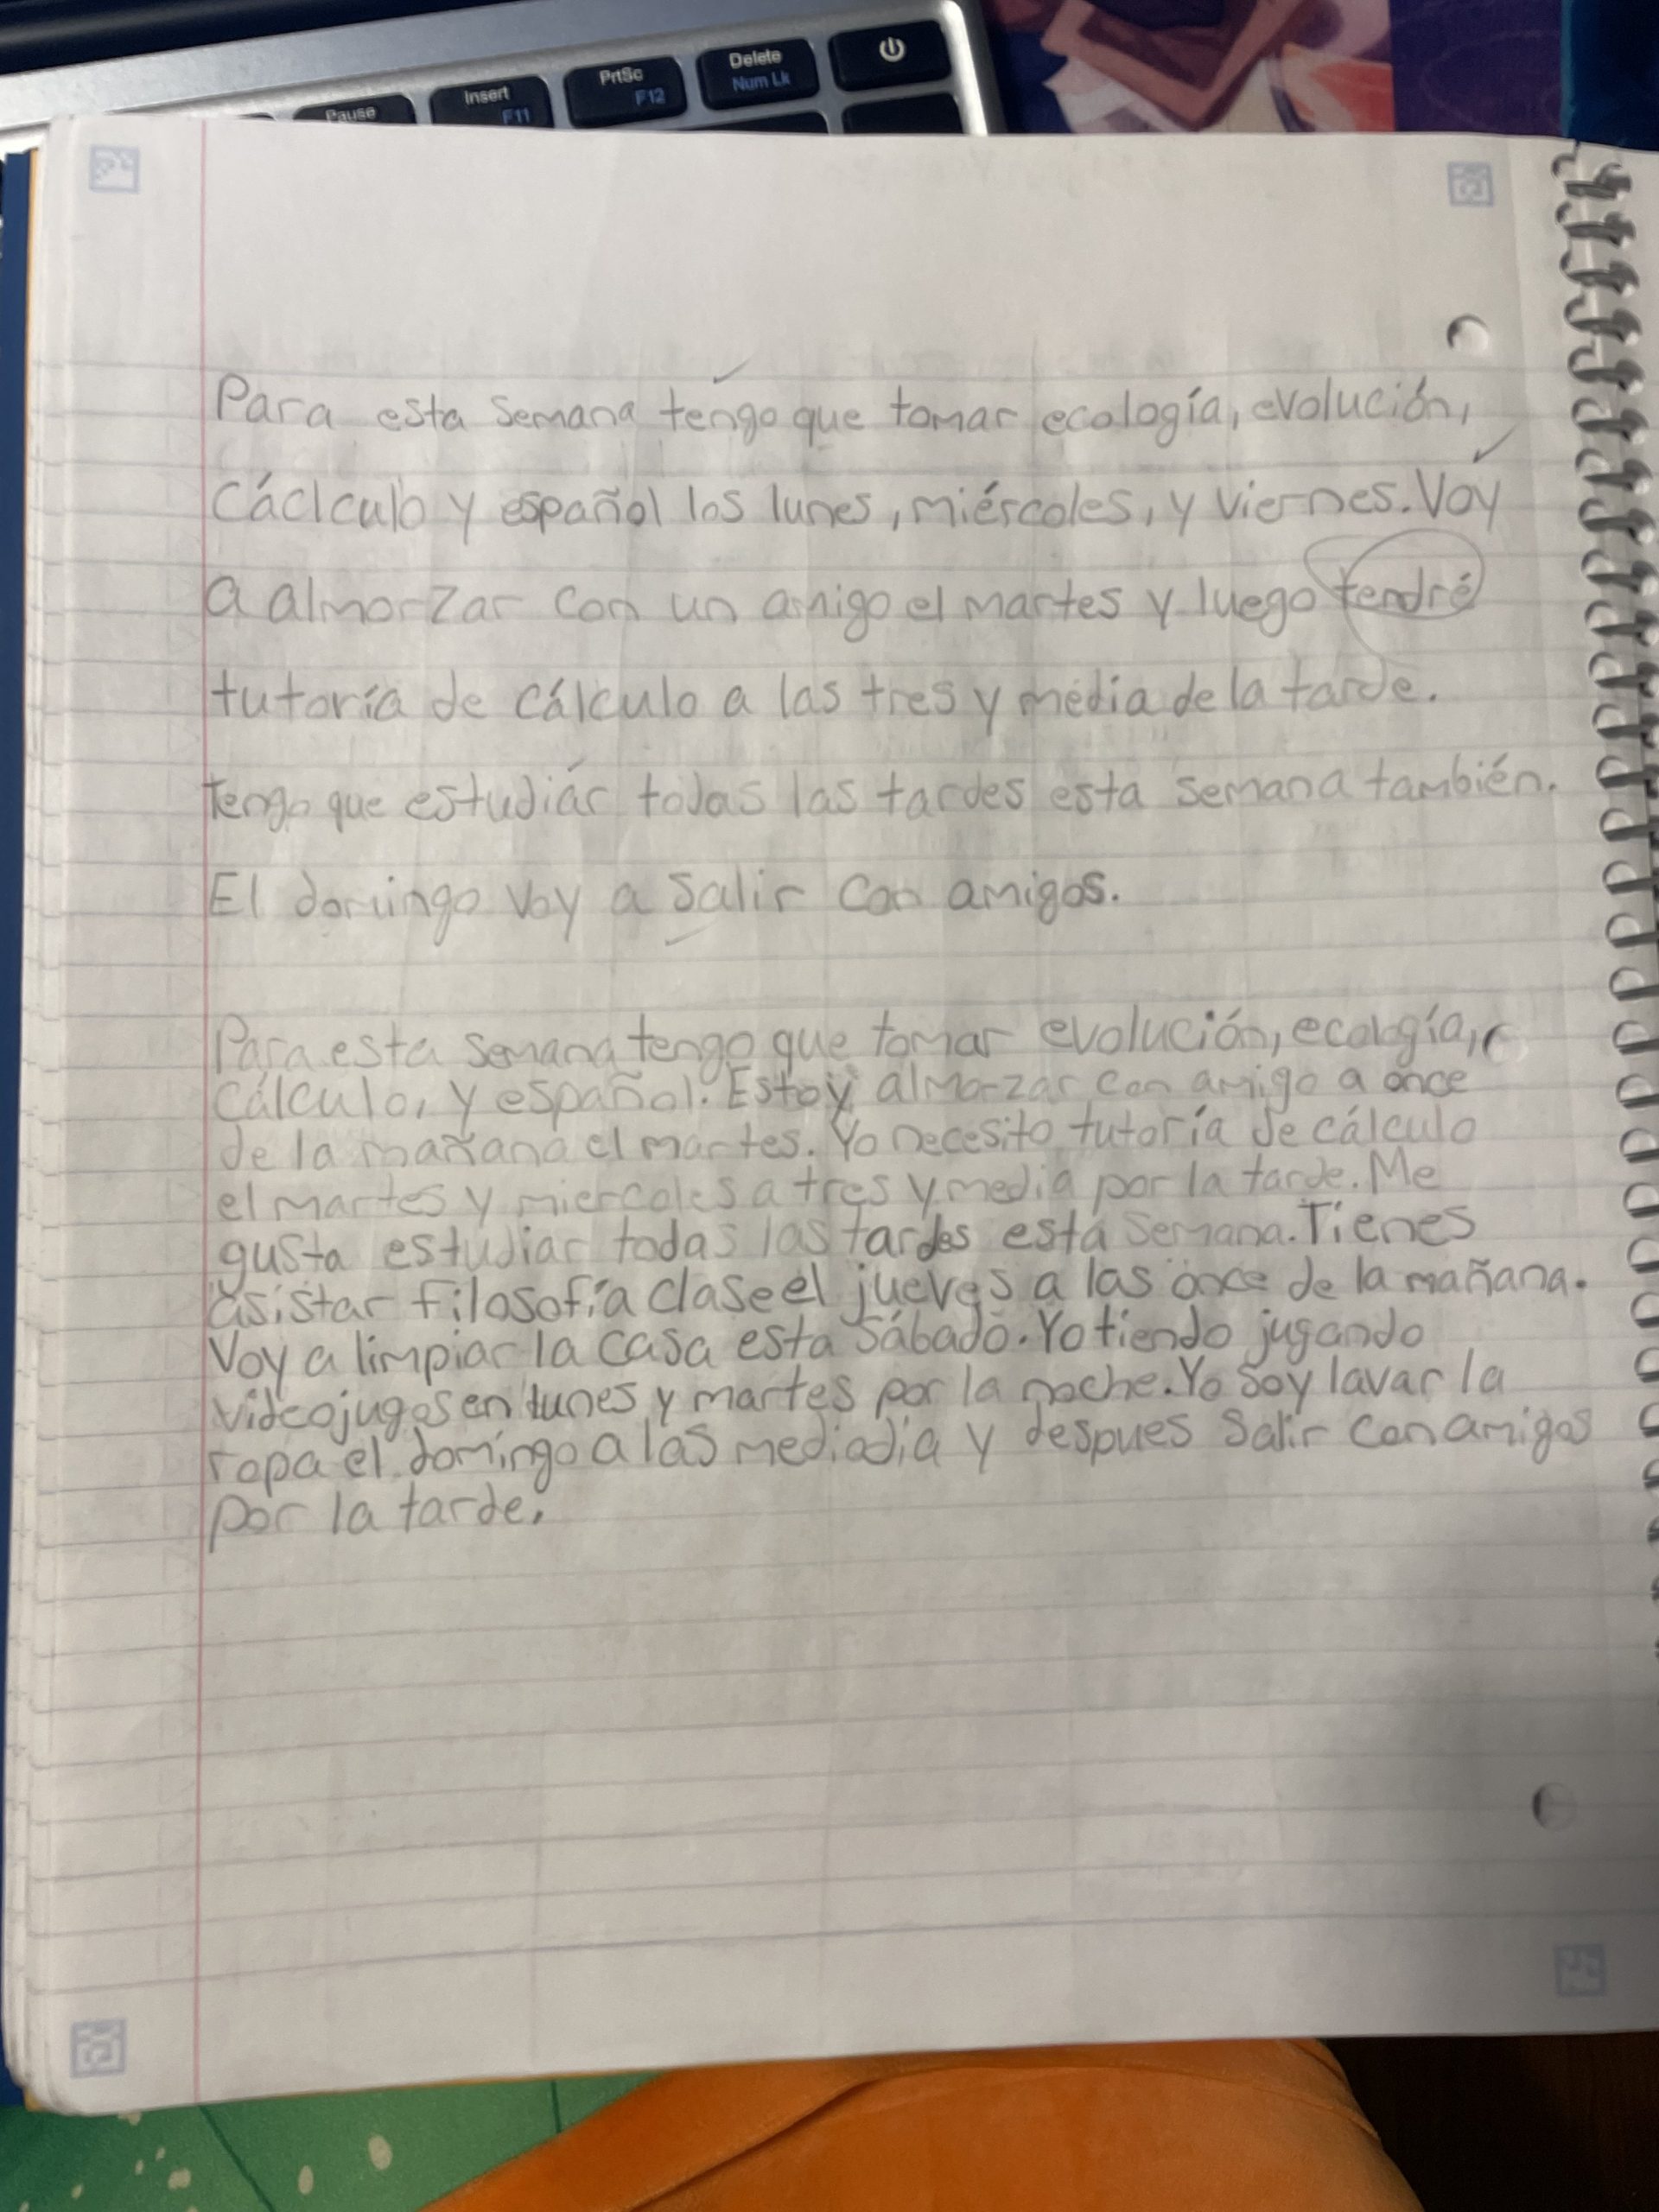 Pause
Insert
F11
PrtSc
F12
Delete
Num Lk
Para esta semana tengo que tomar ecología, evolución,
Cáclculo y español los lunes, miércoles, y viernes. Voy
a almorzar con un amigo el martes y luego tendré
tutoría de cálculo a las tres y media de la tarde.
Tengo que estudiár todas las tardes esta semana también.
El domingo voy a salir con amigos.
Para esta semana tengo que tomar evolución, ecología,
cálculo, y español. Estoy almorzar con amigo a once
de la mañana el martes. Yo necesito tutoría de cálculo
el martes y miercoles a tres y media por la tarde. Me
gusta estudiar todas las tardes esta semana. Tienes
asistar filosofía clase el jueves a las once de la mañana.
Voy a limpiar la casa esta sábado. Yo tiendo jugando
videojugos en lunes y martes por la noche. Yo soy lavar la
ropa el domingo a las mediodia y despues salir con amigos
por la tarde.